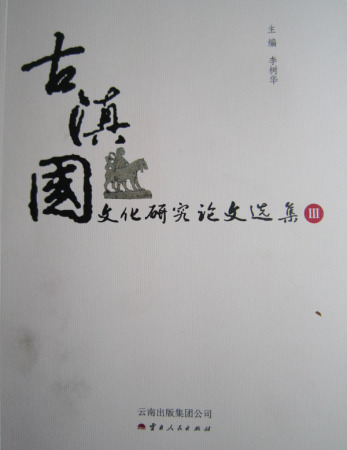 主编 李树华
古滇國
文化研究论文选集 III
云南出版集团公司
云南人民出版社